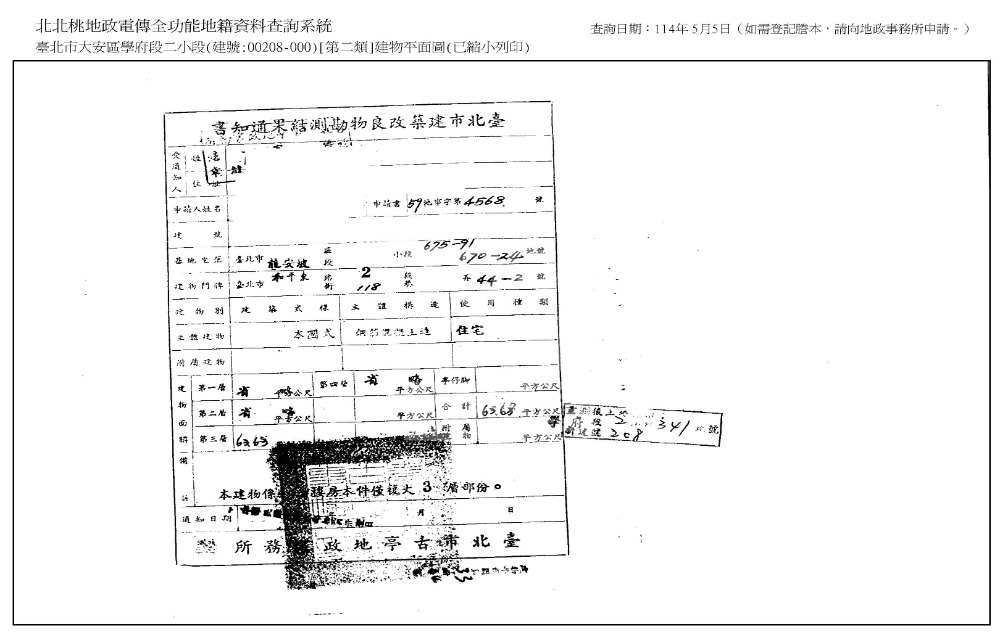 北北桃地政電傳全功能地籍資料查詢系統
查詢日期：114年5月5日（如需登記謄本，請向地政事務所申請。）
臺北市大安區學府段二小段(建號:00208-000)[第二類]建物平面圖(已縮小列印)
書知通果結測勘物良改築建市北臺
受通知人 姓名
住址
申請人姓名 申請書 59地市字第4568 號
建號
基地坐落 臺北市 龍安坡 區段 小段 675-91 670-24 地號
建物門牌 臺北市 和平東 路街 2 118 段巷 弄 44-2 號
建物別 建築式樣 主體構造 使用種類
主體建物 本國式 鋼筋混凝土造 住宅
附屬建物
建物面積 第一層 省略 平方公尺 第四層 省略 平方公尺 亭仔腳 平方公尺
第二層 省略 平方公尺 平方公尺 合計 63.63 平方公尺
第三層 63.63 附屬物 平方公尺
重測後土地
府段 2 341 地號
新建號 208
備註
本建物係 層樓房本件僅複丈 3 層部份。
通知日期 月 日
所務 政地亭古市北臺